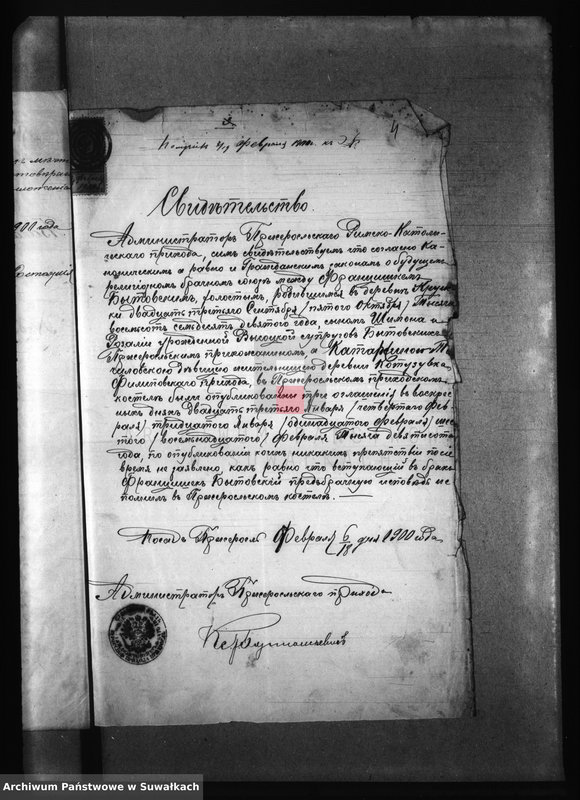 4
Февраля
Свидѣтельство.
Администраторъ Пржеросльскаго Римско-Католи-
ческаго прихода, симъ свидѣтельствуетъ что согласно Ка-
ноническимъ а равно и Гражданскимъ законамъ о будущемъ
религіозномъ брачномъ союзѣ между Францишкомъ
Бытовскимъ, холостымъ, родившимся въ деревнѣ
двадцать третьяго Сентября /пятого Октября/ Тысяча
восемсотъ семдесятъ девятого года, сыномъ Шимона и
Розаліи урожденной Высоцкой супруговъ Бытовскихъ
Пржеросльскимъ прихожаниномъ, а Катаржиною
жительницею деревни
Филиповскаго прихода, въ Пржеросльскомъ приходскомъ
костелѣ были опубликованы три оглашенія въ воскрес-
ныхъ дняхъ Двадцать третьяго Января /четвертаго Фев-
раля/ тридцатого Января /одинадцатого Февраля/ шес-
того /восемнадцатого/ Февраля Тысяча девятисотого
года, по опубликованіи коихъ никакихъ препятствій по сіе
время не заявлено, какъ равно что вступающій въ бракъ
Францишекъ Бытовскій предбрачную исповѣдь ис-
полнилъ въ Пржеросльскомъ костелѣ.
Посадъ Пржеросль Февраля 6/18 дня 1900 года
Администраторъ Пржеросльскаго прихода
900 года
Archiwum Państwowe w Suwałkach